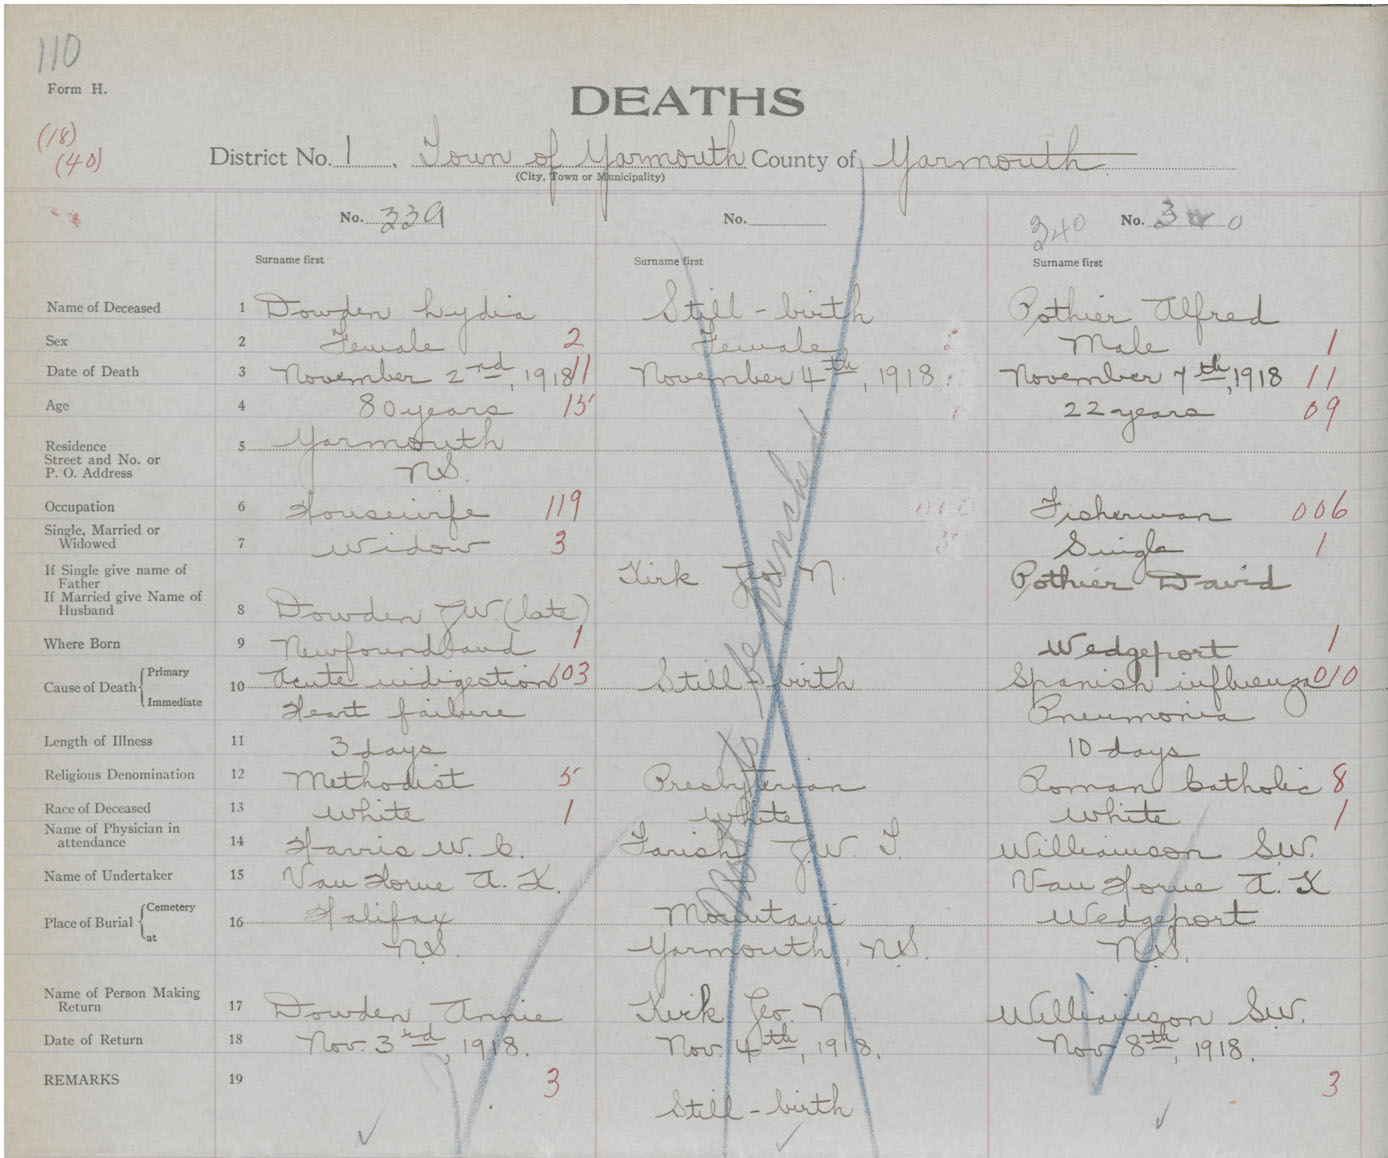 110
Form H.
DEATHS
(18)
(40)
District No. 1. Town of Yarmouth County of Yarmouth
(City, Town or Municipality)
No. 339 No. 340 No. 340
Surname first Surname first Surname first
Name of Deceased 1 Dowden Lydia Still-birth Pothier Alfred
Sex 2 Female 2 Female Male 1
Date of Death 3 November 2nd, 1918 11 November 4th, 1918 November 7th, 1918 11
Age 4 80 years 15 22 years 09
Residence 5 Yarmouth
Street and No. or
P. O. Address N.S.
Occupation 6 Housewife 119 Fisherman 006
Single, Married or
Widowed 7 Widow 3 Single 1
If Single give name of
Father Kirk Geo N. Pothier David
If Married give Name of
Husband 8 Dowden J.W. (late)
Where Born 9 Newfoundland 1 Wedgeport 1
Cause of Death Primary 10 Acute indigestion 103 Still-birth Spanish influenza 010
Immediate Heart failure Pneumonia
Length of Illness 11 3 days 10 days
Religious Denomination 12 Methodist 5 Presbyterian Roman Catholic 8
Race of Deceased 13 White 1 White White 1
Name of Physician in
attendance 14 Harris W. C. Farish G.W. T. Williamson S.W.
Name of Undertaker 15 Van Horne A. K. Van Horne A. K
Place of Burial Cemetery 16 Halifax Mountain Wedgeport
at N.S. Yarmouth, N.S. N.S.
Not to be punched
Name of Person Making
Return 17 Dowden Annie Kirk Geo. N. Williamson S.W.
Date of Return 18 Nov. 3rd, 1918. Nov. 4th, 1918. Nov 8th, 1918.
REMARKS 19 3 Still-birth 3